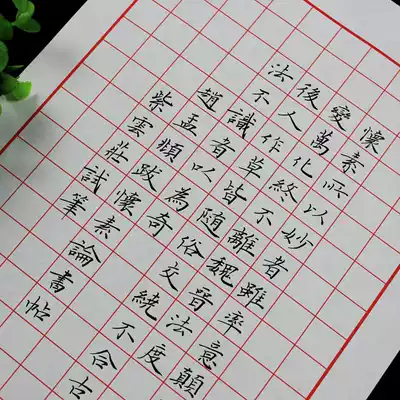 懷素所以妙者雖率意顛
變萬化終不離魏晉法度
後人作草皆隨俗交繞不合古
法不識者以為奇
趙孟頫跋懷素論書帖
紫雲莊試筆